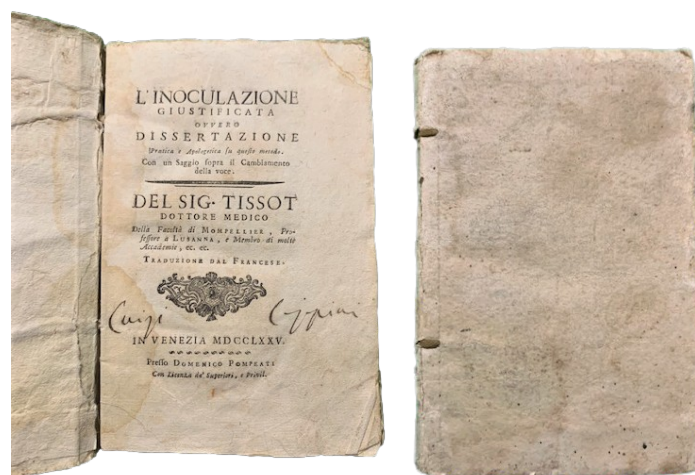 L'INOCULAZIONE
GIUSTIFICATA
OVVERO
DISSERTAZIONE
Pratica e Apologetica su questo metodo.
Con un Saggio sopra il Cambiamento
della voce.
DEL SIG. TISSOT
DOTTORE MEDICO
Della Facoltà di MOMPELLIER, Pro-
fessore a LUSANNA, e Membro di molte
Accademie, ec. ec.
TRADUZIONE DAL FRANCESE.
Luigi
IN VENEZIA MDCCLXXV.
Presso DOMENICO POMPEATI
Con Licenza de' Superiori, e Privil.